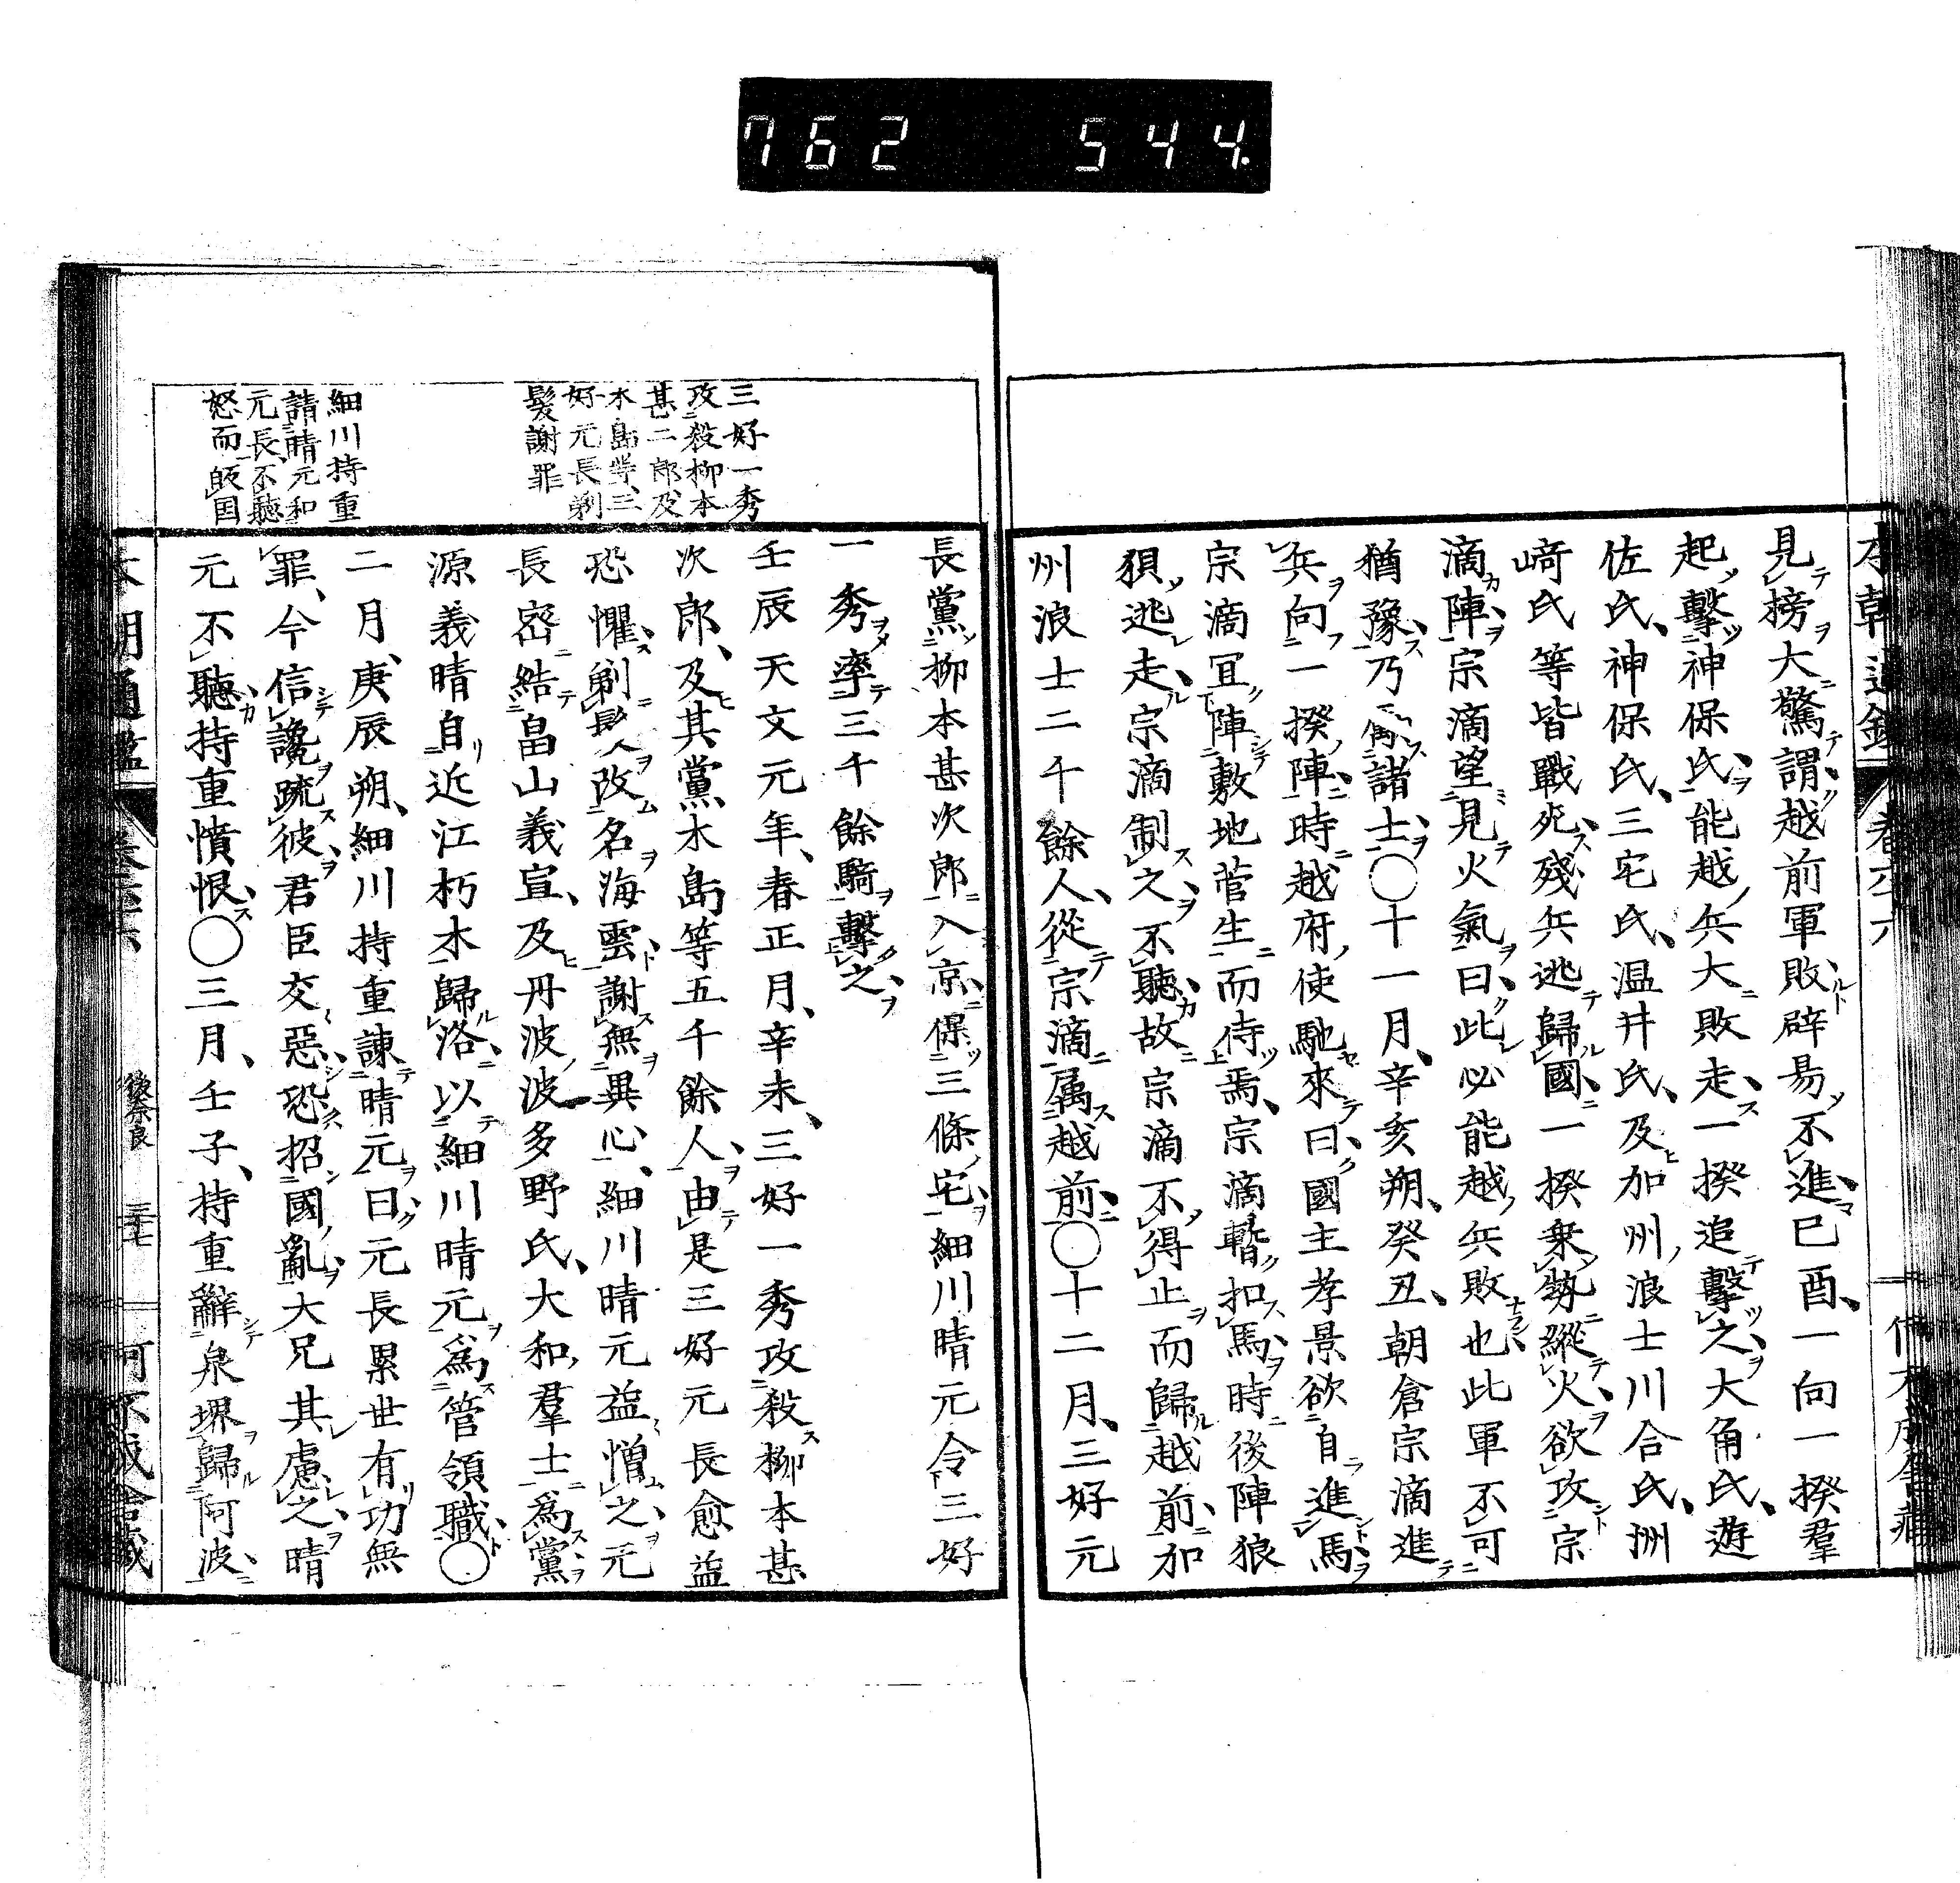 762 544.
見榜大驚謂越前軍敗辟易不進巳酉、一向一揆羣
起擊神保氏、能越兵大敗走、一揆追擊之、大角氏、遊
佐氏、神保氏、三宅氏、温井氏、及加州浪士川合氏、洲
﨑氏等皆戰死、殘兵逃歸國、一揆乘勢縱火、欲攻宗
滴陣、宗滴望見火氣曰、此必能越兵敗也此軍不可
猶豫、乃諸士、〇十一月、辛亥朔、癸丑、朝倉宗滴進
兵向一揆陣、時越府使馳來曰、國主孝景欲自進馬、
宗滴冝陣敷地菅生而侍焉、宗滴暫扣馬、時後陣狼
狽逃走、宗滴制之、不聽、故宗滴不得止而歸越前、加
州浪士二千餘人、從宗滴属越前、〇十二月、三好元
三好一秀
攻殺柳本
甚二郎及
木島等、三
好元長剃
髮謝罪
細川持重
請晴元和
元長、不聽
怒而皈国
長黨柳本甚次郎入京、保三條宅、細川晴元令三好
一秀率三千餘騎擊之、
壬辰天文元年、春正月、辛未、三好一秀攻殺柳本甚
次郎、及其黨木島等五千餘人、由是三好元長愈益
恐懼、剃髮改名海雲、謝無異心、細川晴元益憎之、元
長密結畠山義宣、及丹波波多野氏、大和羣士爲黨、
源義晴自近江朽木歸洛、以細川晴元爲管領職、〇
二月、庚辰朔、細川持重諫晴元曰、元長累世有功無
罪、今信讒疏彼、君臣交惡、恐招國亂、大兄其慮之、晴
元不聽、持重憤恨、〇三月、壬子、持重辭泉堺歸阿波、
後奈良 三十七